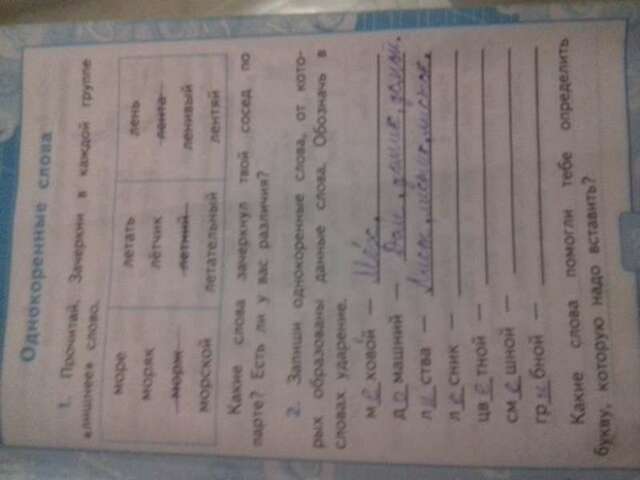 Однокоренные слова
1. Прочитай. Зачеркни в каждой группе
«лишнее» слово.
море летать лень
моряк лётчик лента
морж летний ленивый
морской летательный лентяй
Какие слова зачеркнул твой сосед по
парте? Есть ли у вас различия?
2. Запиши однокоренные слова, от кото-
рых образованы данные слова. Обозначь в
словах ударение.
меховой — Мех.
домашний — Дом, домик, домой.
листва — Лист, листик, листок.
лесник —
цветной —
смешной —
грибной —
Какие слова помогли тебе определить
букву, которую надо вставить?